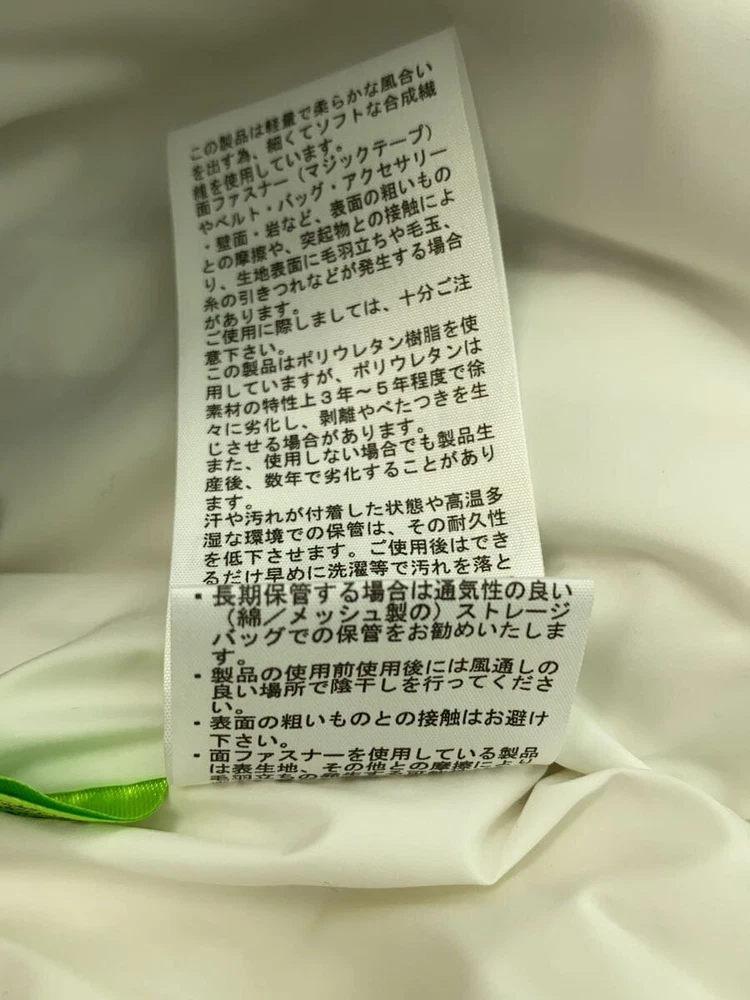 この製品は軽量で柔らかな風合い
を出す為、細くてソフトな合成繊
維を使用しています。
面ファスナー（マジックテープ）
やベルト・バッグ・アクセサリー
・壁面・岩など、表面の粗いもの
との摩擦や、突起物との接触によ
り、生地表面に毛羽立ちや毛玉、
糸の引きつれなどが発生する場合
があります。
ご使用に際しましては、十分ご注
意下さい。
この製品はポリウレタン樹脂を使
用していますが、ポリウレタンは
素材の特性上３年～５年程度で徐
々に劣化し、剥離やべたつきを生
じさせる場合があります。
また、使用しない場合でも製品生
産後、数年で劣化することがあり
ます。
汗や汚れが付着した状態や高温多
湿な環境での保管は、その耐久性
を低下させます。ご使用後はでき
るだけ早めに洗濯等で汚れを落と
・長期保管する場合は通気性の良い
（綿／メッシュ製の）ストレージ
バッグでの保管をお勧めいたしま
す。
・製品の使用前使用後には風通しの
良い場所で陰干しを行ってくださ
い。
・表面の粗いものとの接触はお避け
下さい。
・面ファスナーを使用している製品
は表生地、その他との摩擦により